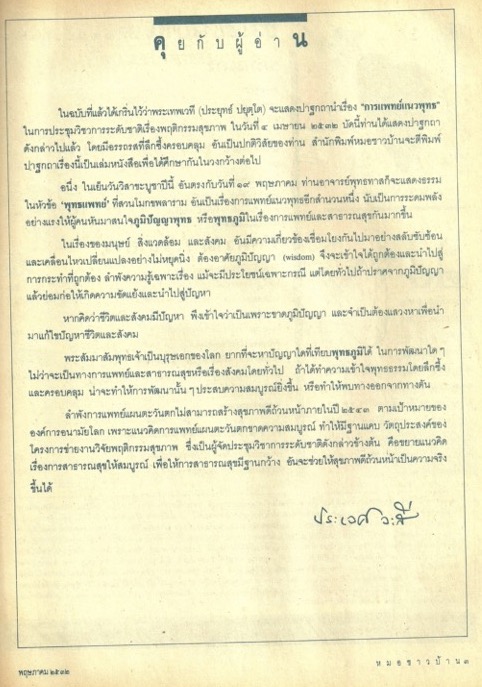 คุยกับผู้อ่าน
ในฉบับที่แล้วได้เกริ่นไว้ว่าพระเทพเวที (ประยุทธ์ ปยุตฺโต) จะแสดงปาฐกถานำเรื่อง "การแพทย์แนวพุทธ"
ในการประชุมวิชาการระดับชาติเรื่องพฤติกรรมสุขภาพ ในวันที่ ๔ เมษายน ๒๕๓๒ บัดนี้ท่านได้แสดงปาฐกถา
ดังกล่าวไปแล้ว โดยมีอรรถรสที่ลึกซึ้งครอบคลุม อันเป็นปกติวิสัยของท่าน สำนักพิมพ์หมอชาวบ้านจะตีพิมพ์
ปาฐกถาเรื่องนี้เป็นเล่มหนังสือเพื่อได้ศึกษากันในวงกว้างต่อไป
อนึ่ง ในเย็นวันวิสาขะบูชาปีนี้ อันตรงกับวันที่ ๑๙ พฤษภาคม ท่านอาจารย์พุทธทาสก็จะแสดงธรรม
ในหัวข้อ 'พุทธแพทย์' ที่สวนโมกขพลาราม อันเป็นเรื่องการแพทย์แนวพุทธอีกสำนวนหนึ่ง นับเป็นการระดมพลัง
อย่างแรงให้ผู้คนหันมาสนใจภูมิปัญญาพุทธ หรือพุทธภูมิในเรื่องการแพทย์และสาธารณสุขกันมากขึ้น
ในเรื่องของมนุษย์ สิ่งแวดล้อม และสังคม อันมีความเกี่ยวข้องเชื่อมโยงกันไปมาอย่างสลับซับซ้อน
และเคลื่อนไหวเปลี่ยนแปลงอย่างไม่หยุดนิ่ง ต้องอาศัยภูมิปัญญา (wisdom) จึงจะเข้าใจได้ถูกต้องและนำไปสู่
การกระทำที่ถูกต้อง ลำพังความรู้เฉพาะเรื่อง แม้จะมีประโยชน์เฉพาะกรณี แต่โดยทั่วไปถ้าปราศจากภูมิปัญญา
แล้วย่อมก่อให้เกิดความขัดแย้งและนำไปสู่ปัญหา
หากคิดว่าชีวิตและสังคมมีปัญหา พึงเข้าใจว่าเป็นเพราะขาดภูมิปัญญา และจำเป็นต้องแสวงหาเพื่อนำ
มาแก้ไขปัญหาชีวิตและสังคม
พระสัมมาสัมพุทธเจ้าเป็นบุรุษเอกของโลก ยากที่จะหาปัญญาใดที่เทียบพุทธภูมิได้ ในการพัฒนาใด ๆ
ไม่ว่าจะเป็นทางการแพทย์และสาธารณสุขหรือเรื่องสังคมโดยทั่วไป ถ้าได้ทำความเข้าใจพุทธธรรมโดยลึกซึ้ง
และครอบคลุม น่าจะทำให้การพัฒนานั้น ๆ ประสบความสมบูรณ์ยิ่งขึ้น หรือทำให้พบทางออกจากทางตัน
ลำพังการแพทย์แผนตะวันตกไม่สามารถสร้างสุขภาพดีถ้วนหน้าภายในปี ๒๕๔๓ ตามเป้าหมายของ
องค์การอนามัยโลก เพราะแนวคิดการแพทย์แผนตะวันตกขาดความสมบูรณ์ ทำให้มีฐานแคบ วัตถุประสงค์ของ
โครงการข่ายงานวิจัยพฤติกรรมสุขภาพ ซึ่งเป็นผู้จัดประชุมวิชาการระดับชาติดังกล่าวข้างต้น คือขยายแนวคิด
เรื่องการสาธารณสุขให้สมบูรณ์ เพื่อให้การสาธารณสุขมีฐานกว้าง อันจะช่วยให้สุขภาพดีถ้วนหน้าเป็นความจริง
ขึ้นได้
ประเวศ วะสี
พฤษภาคม ๒๕๓๒
หมอชาวบ้าน ๓